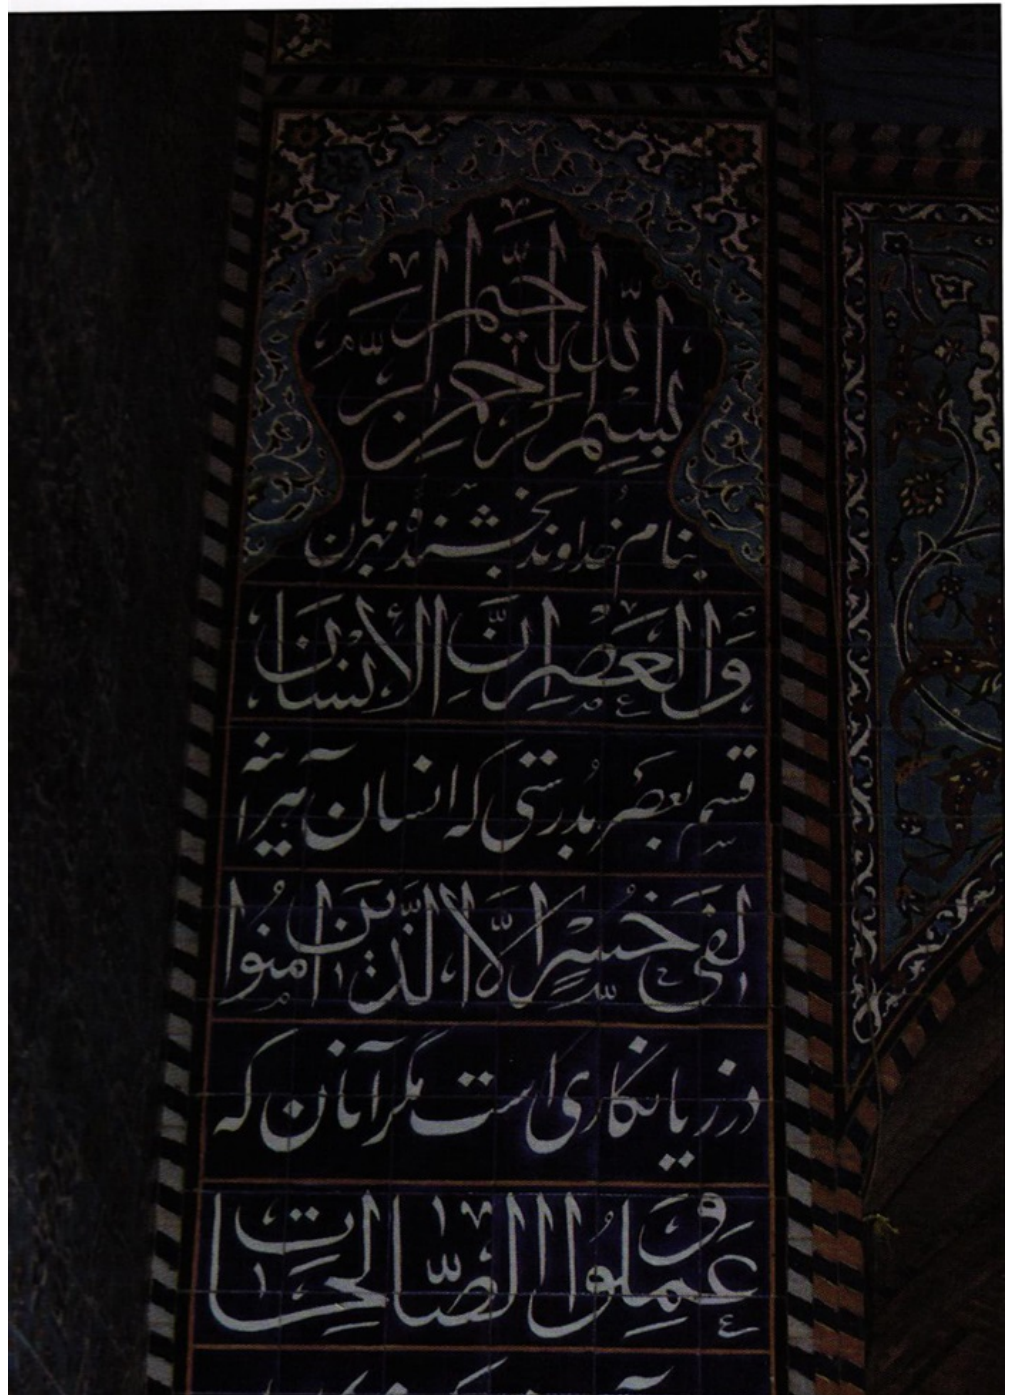 بِسْمِ اللّٰهِ الرَّحْمٰنِ الرَّحِیْمِ
بنام خداوند بخشنده مهربان
وَالْعَصْرِ اِنَّ الْاِنْسَانَ
قسم بعصر بدرستی که انسان هر آینه
لَفِی خُسْرٍ اِلَّا الَّذِینَ اٰمَنُوا
در زیانکاری است مگر آنان که
وَ عَمِلُوا الصَّالِحَاتِ